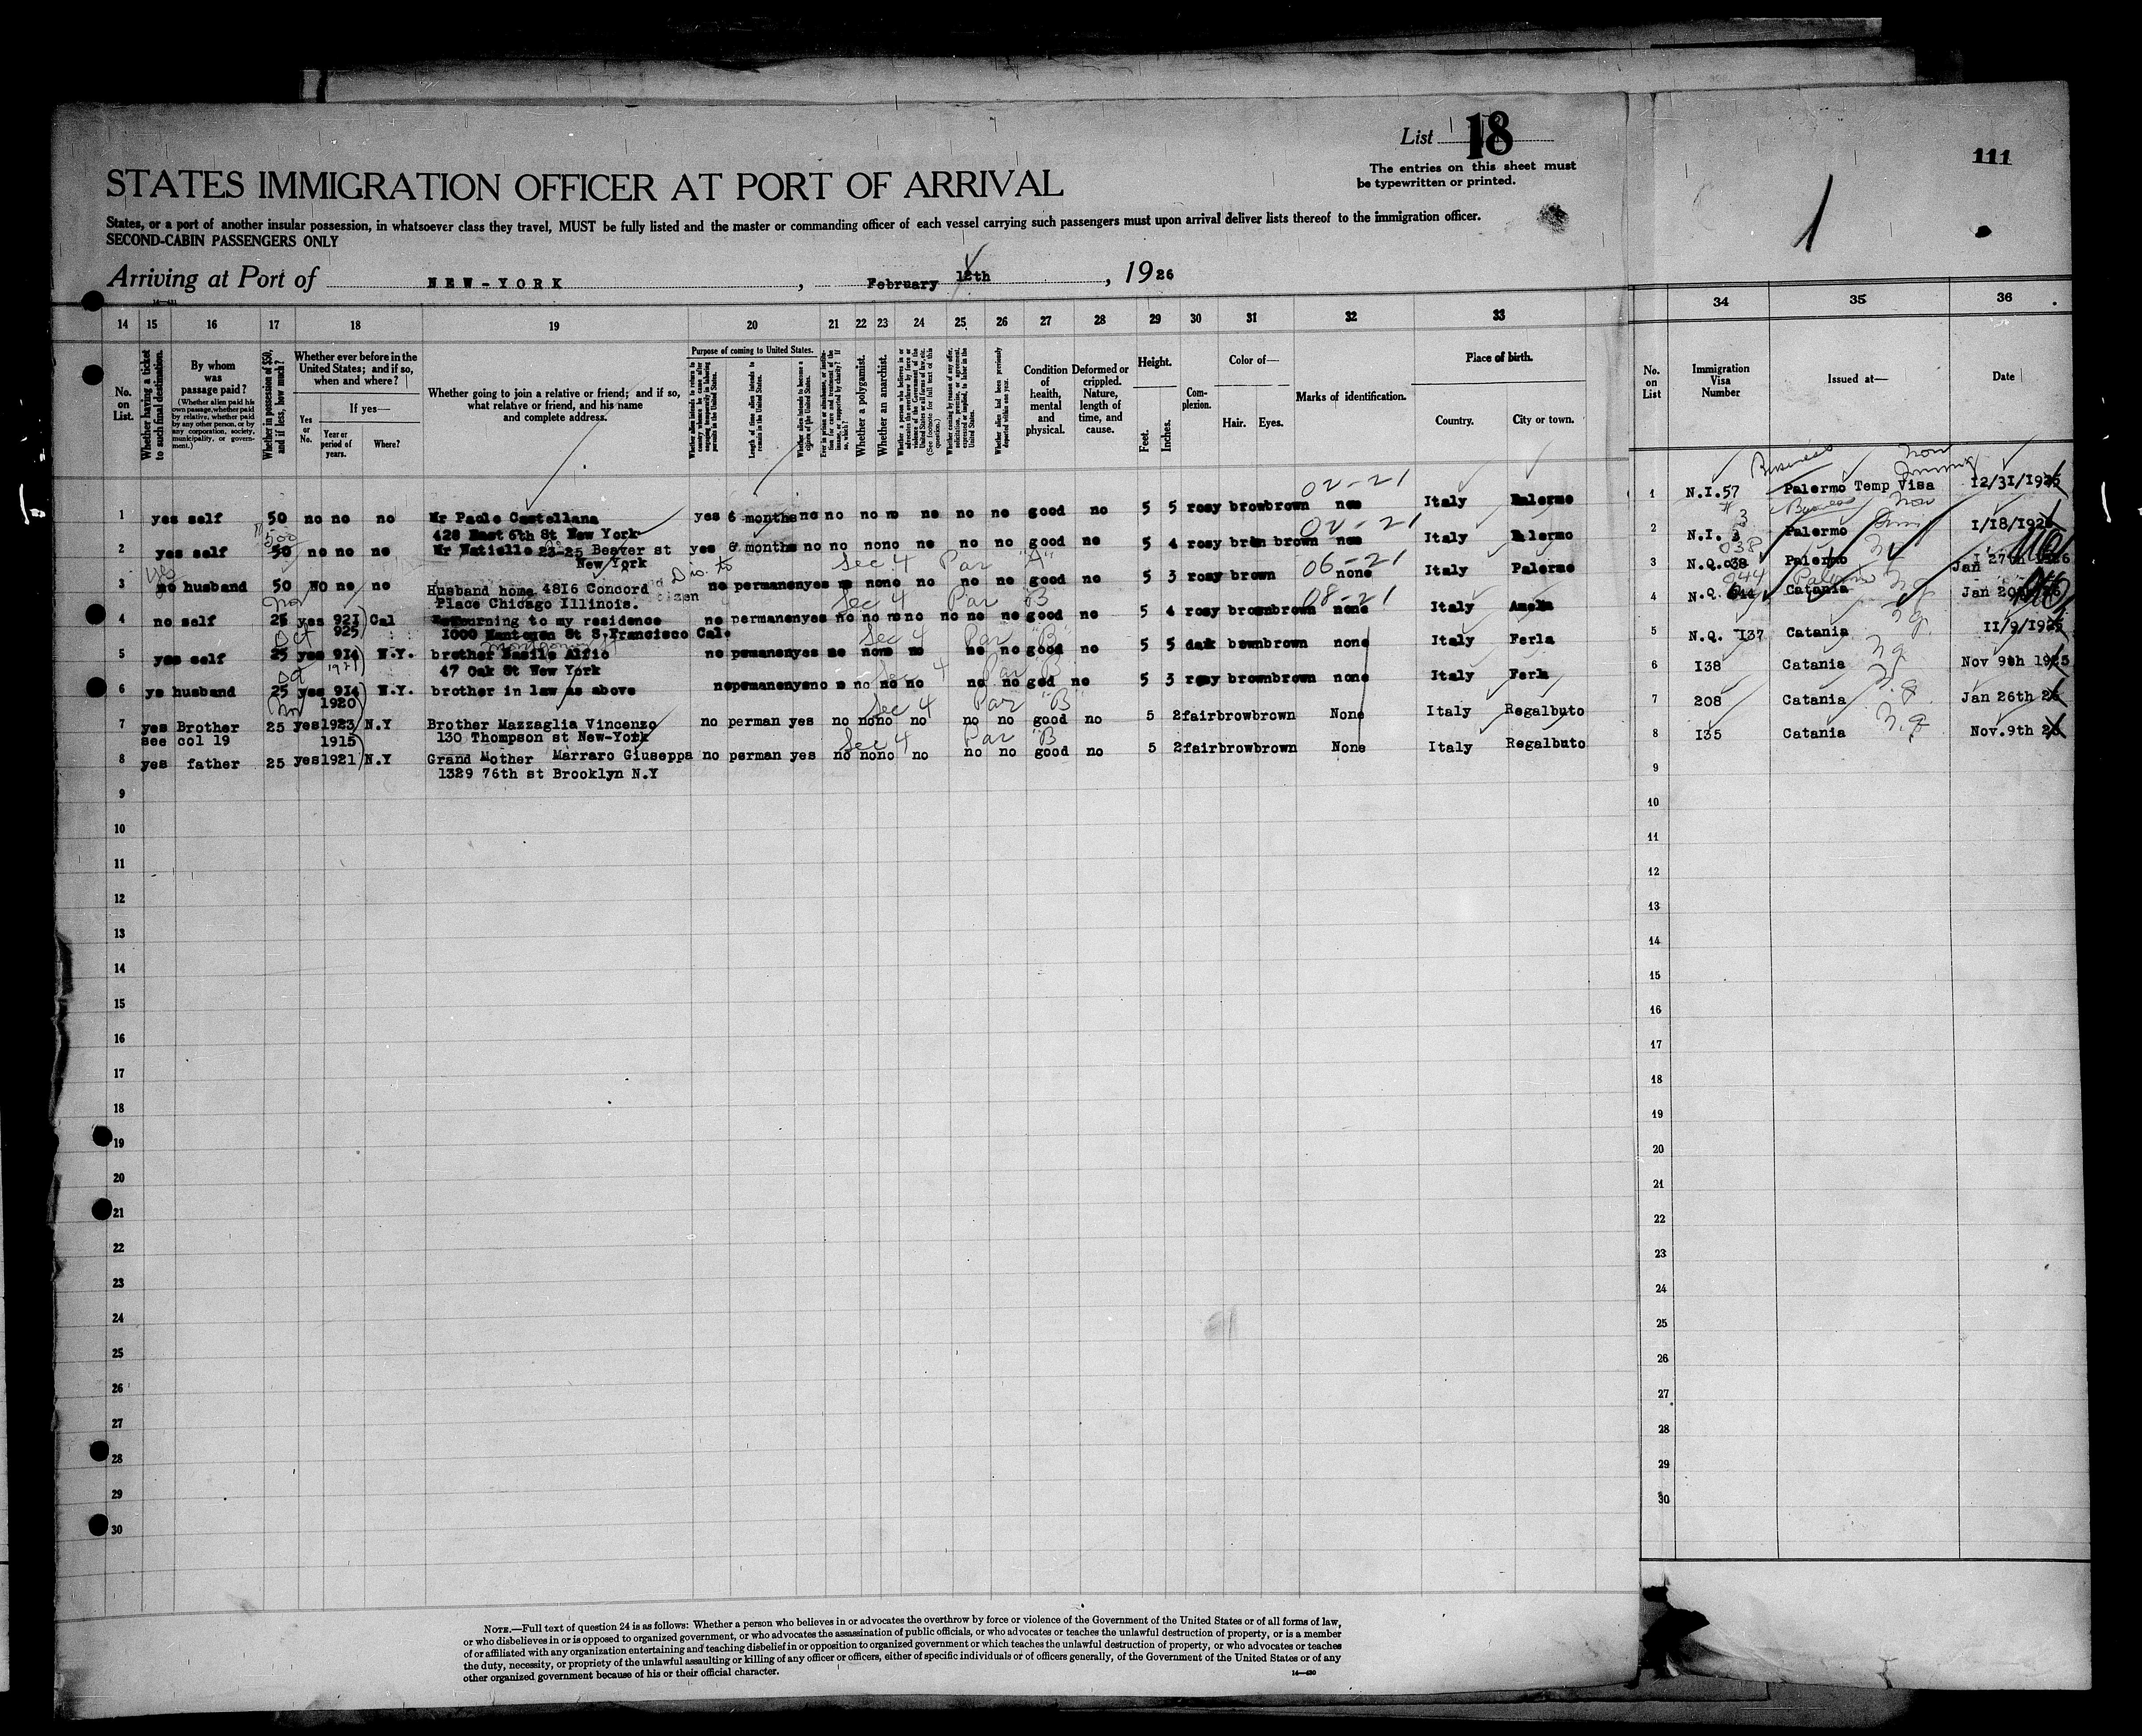 List 18
111
The entries on this sheet must
be typewritten or printed.
1
STATES IMMIGRATION OFFICER AT PORT OF ARRIVAL
States, or a port of another insular possession, in whatsoever class they travel, MUST be fully listed and the master or commanding officer of each vessel carrying such passengers must upon arrival deliver lists thereof to the immigration officer.
SECOND-CABIN PASSENGERS ONLY
Arriving at Port of NEW-YORK, February 12th, 1926
14 15 16 17 18 19 20 21 22 23 24 25 26 27 28 29 30 31 32 33 34 35 36
No. on List.
Whether having a ticket to such final destination.
By whom was passage paid?
(Whether alien paid his own passage, whether paid by relative, whether paid by any other person, or by any corporation, society, municipality, or government.)
Whether in possession of $50, and if less, how much?
Whether ever before in the United States; and if so, when and where?
If yes—
Yes or No.
Year or period of years.
Where?
Whether going to join a relative or friend; and if so, what relative or friend, and his name and complete address.
Purpose of coming to United States.
Length of time alien intends to remain in the United States.
Whether alien intends to become a citizen of the United States.
Whether a polygamist.
Whether an anarchist.
Condition of health, mental and physical.
Deformed or crippled. Nature, length of time, and cause.
Height.
Feet.
Inches.
Complexion.
Color of—
Hair. Eyes.
Marks of identification.
Place of birth.
Country. City or town.
No. on List
Immigration Visa Number
Issued at—
Date
Business Non Immig
02-21
1 yes self 50 no no no Mr Paolo Castellana yes 6 months no no no no no no no good no 5 5 rosy brow brown non Italy Palermo 1 N.I.57 Palermo Temp Visa 12/31/1925
428 East 6th St New York
500 02-21
2 yes self 50 no no no Mr Natiello 23-25 Beaver st yes 6 months no no no no no no no good no 5 4 rosy brown brown non Italy Palermo 2 N.I. 3 Palermo 1/18/1926
New York
yes Sec 4 Par "A" 06-21 038
3 no husband 50 NO no no Husband home 4816 Concord no permanen yes no no no no no no good no 5 3 rosy brown none Italy Palermo 3 N.Q.038 Palermo Jan 27th 1926
Place Chicago Illinois.
Sec 4 Par B 08-21 044 Palermo
4 no self 25 yes 921 Cal Retourning to my residence no permanen yes no no no no no no no good no 5 4 rosy brown brown none Italy 4 N.Q. 044 Catania Jan 20
925 1000 St S.Francisco Cal.
Montgomery
Sec 4 Par "B"
5 yes self 25 yes 914 N.Y. brother Basile Alfio no permanen yes no no no no no no good no 5 5 dark brown brown none Italy Ferla 5 N.Q. 137 Catania 11/9/1925
47 Oak St New York
Sec 4 Par B
6 ye husband 25 yes 914 N.Y. brother in law as above no permanen yes no no no no no no no good no 5 3 rosy brown brown none Italy Ferla 6 138 Catania Nov 9th 1925
1920 Sec 4 Par "B"
7 yes Brother 25 yes 1923 N.Y Brother Mazzaglia Vincenzo no perman yes no no no no no no good no 5 2 fair brow brown None Italy Regalbuto 7 208 Catania Jan 26th 26
see col 19 1915 130 Thompson st New-York
Sec 4 Par "B
8 yes father 25 yes 1921 N.Y Grand Mother Marraro Giuseppa no perman yes no no no no no no good no 5 2 fair brow brown None Italy Regalbuto 8 135 Catania Nov.9th
1329 76th st Brooklyn N.Y
9 9
10 10
11 11
12 12
13 13
14 14
15 15
16 16
17 17
18 18
19 19
20 20
21 21
22 22
23 23
24 24
25 25
26 26
27 27
28 28
29 29
30 30
NOTE.—Full text of question 24 is as follows: Whether a person who believes in or advocates the overthrow by force or violence of the Government of the United States or of all forms of law,
or who disbelieves in or is opposed to organized government, or who advocates the assassination of public officials, or who advocates or teaches the unlawful destruction of property, or is a member
of or affiliated with any organization entertaining and teaching disbelief in or opposition to organized government or which teaches the unlawful destruction of property, or who advocates or teaches
the duty, necessity, or propriety of the unlawful assaulting or killing of any officer or officers, either of specific individuals or of officers generally, of the Government of the United States or of any
other organized government because of his or their official character.
14—430